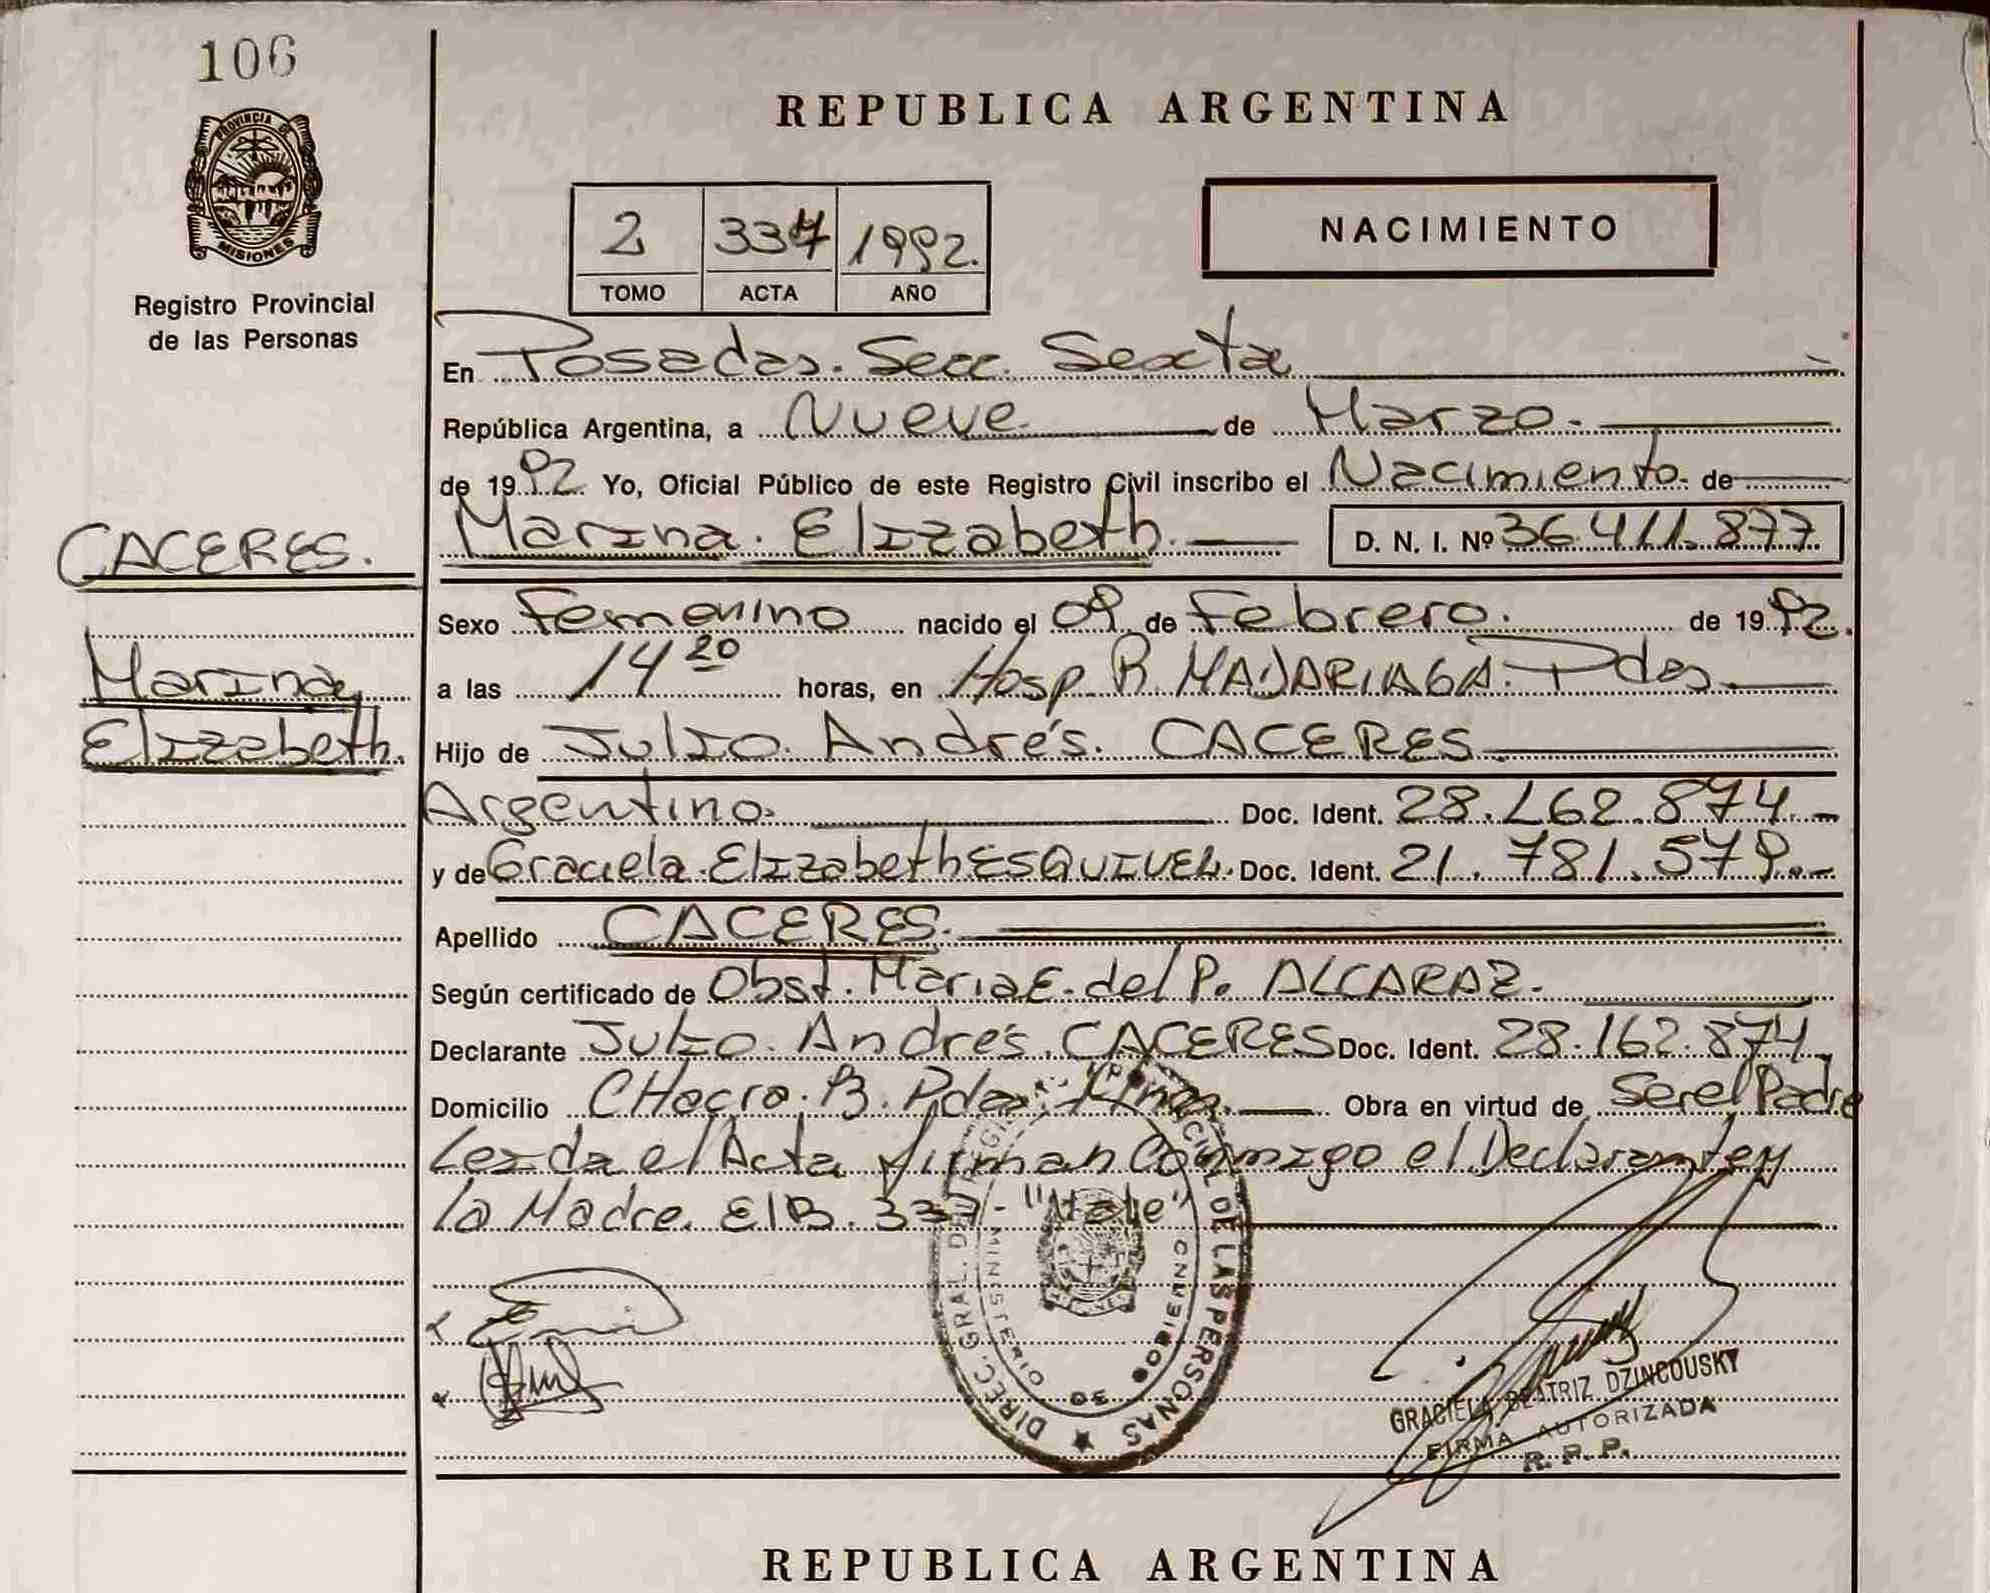 106
PROVINCIA DE
MISIONES
Registro Provincial
de las Personas
REPUBLICA ARGENTINA
2 337 1992.
TOMO ACTA AÑO
NACIMIENTO
En Posadas. Secc. Sexta
República Argentina, a Nueve de Marzo.
de 1992 Yo, Oficial Público de este Registro Civil inscribo el Nacimiento de
CACERES.
Marina Elizabeth.
Marina. Elizabeth. D. N. I. Nº 36.411.877
Sexo Femenino nacido el 09 de Febrero. de 1992.
a las 14 20 horas, en Hosp. R. MADARIAGA. Pdas
Hijo de Julio. Andrés. CACERES
Argentino. Doc. Ident. 28.162.874.
y de Graciela. Elizabeth ESQUIVEL. Doc. Ident. 21.781.579.
Apellido CACERES.
Según certificado de Obst. Maria E. del P. ALCARAZ.
Declarante Julio. Andrés. CACERES Doc. Ident. 28.162.874
Domicilio CHacra. B. Pdas. Obra en virtud de Ser el Padre
Leida el Acta firman Conmigo el Declarante y
la Madre. E/B. 337- "Vale"
DIREC. GRAL. DEL DE LAS PERSONAS
MINISTERIO DE GOBIERNO
GRACIELA BEATRIZ DZINCOUSKY
FIRMA AUTORIZADA
R. P. P.
REPUBLICA ARGENTINA